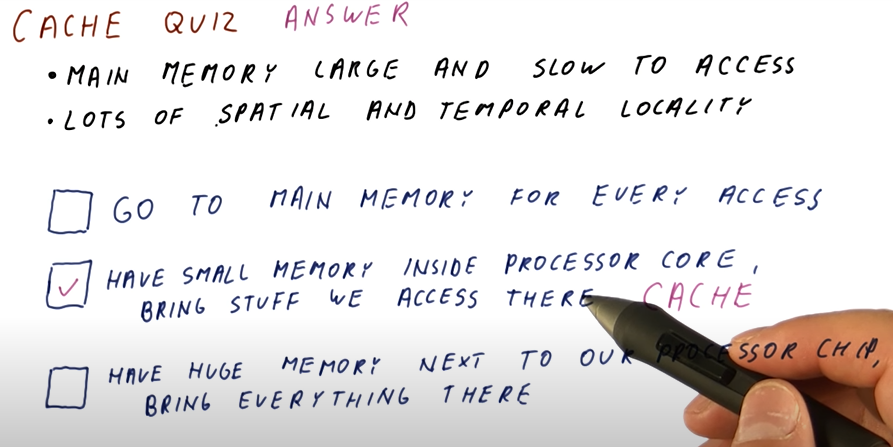 CACHE QUIZ ANSWER
• MAIN MEMORY LARGE AND SLOW TO ACCESS
• LOTS OF SPATIAL AND TEMPORAL LOCALITY
GO TO MAIN MEMORY FOR EVERY ACCESS
HAVE SMALL MEMORY INSIDE PROCESSOR CORE,
BRING STUFF WE ACCESS THERE CACHE
HAVE HUGE MEMORY NEXT TO OUR PROCESSOR CHIP,
BRING EVERYTHING THERE